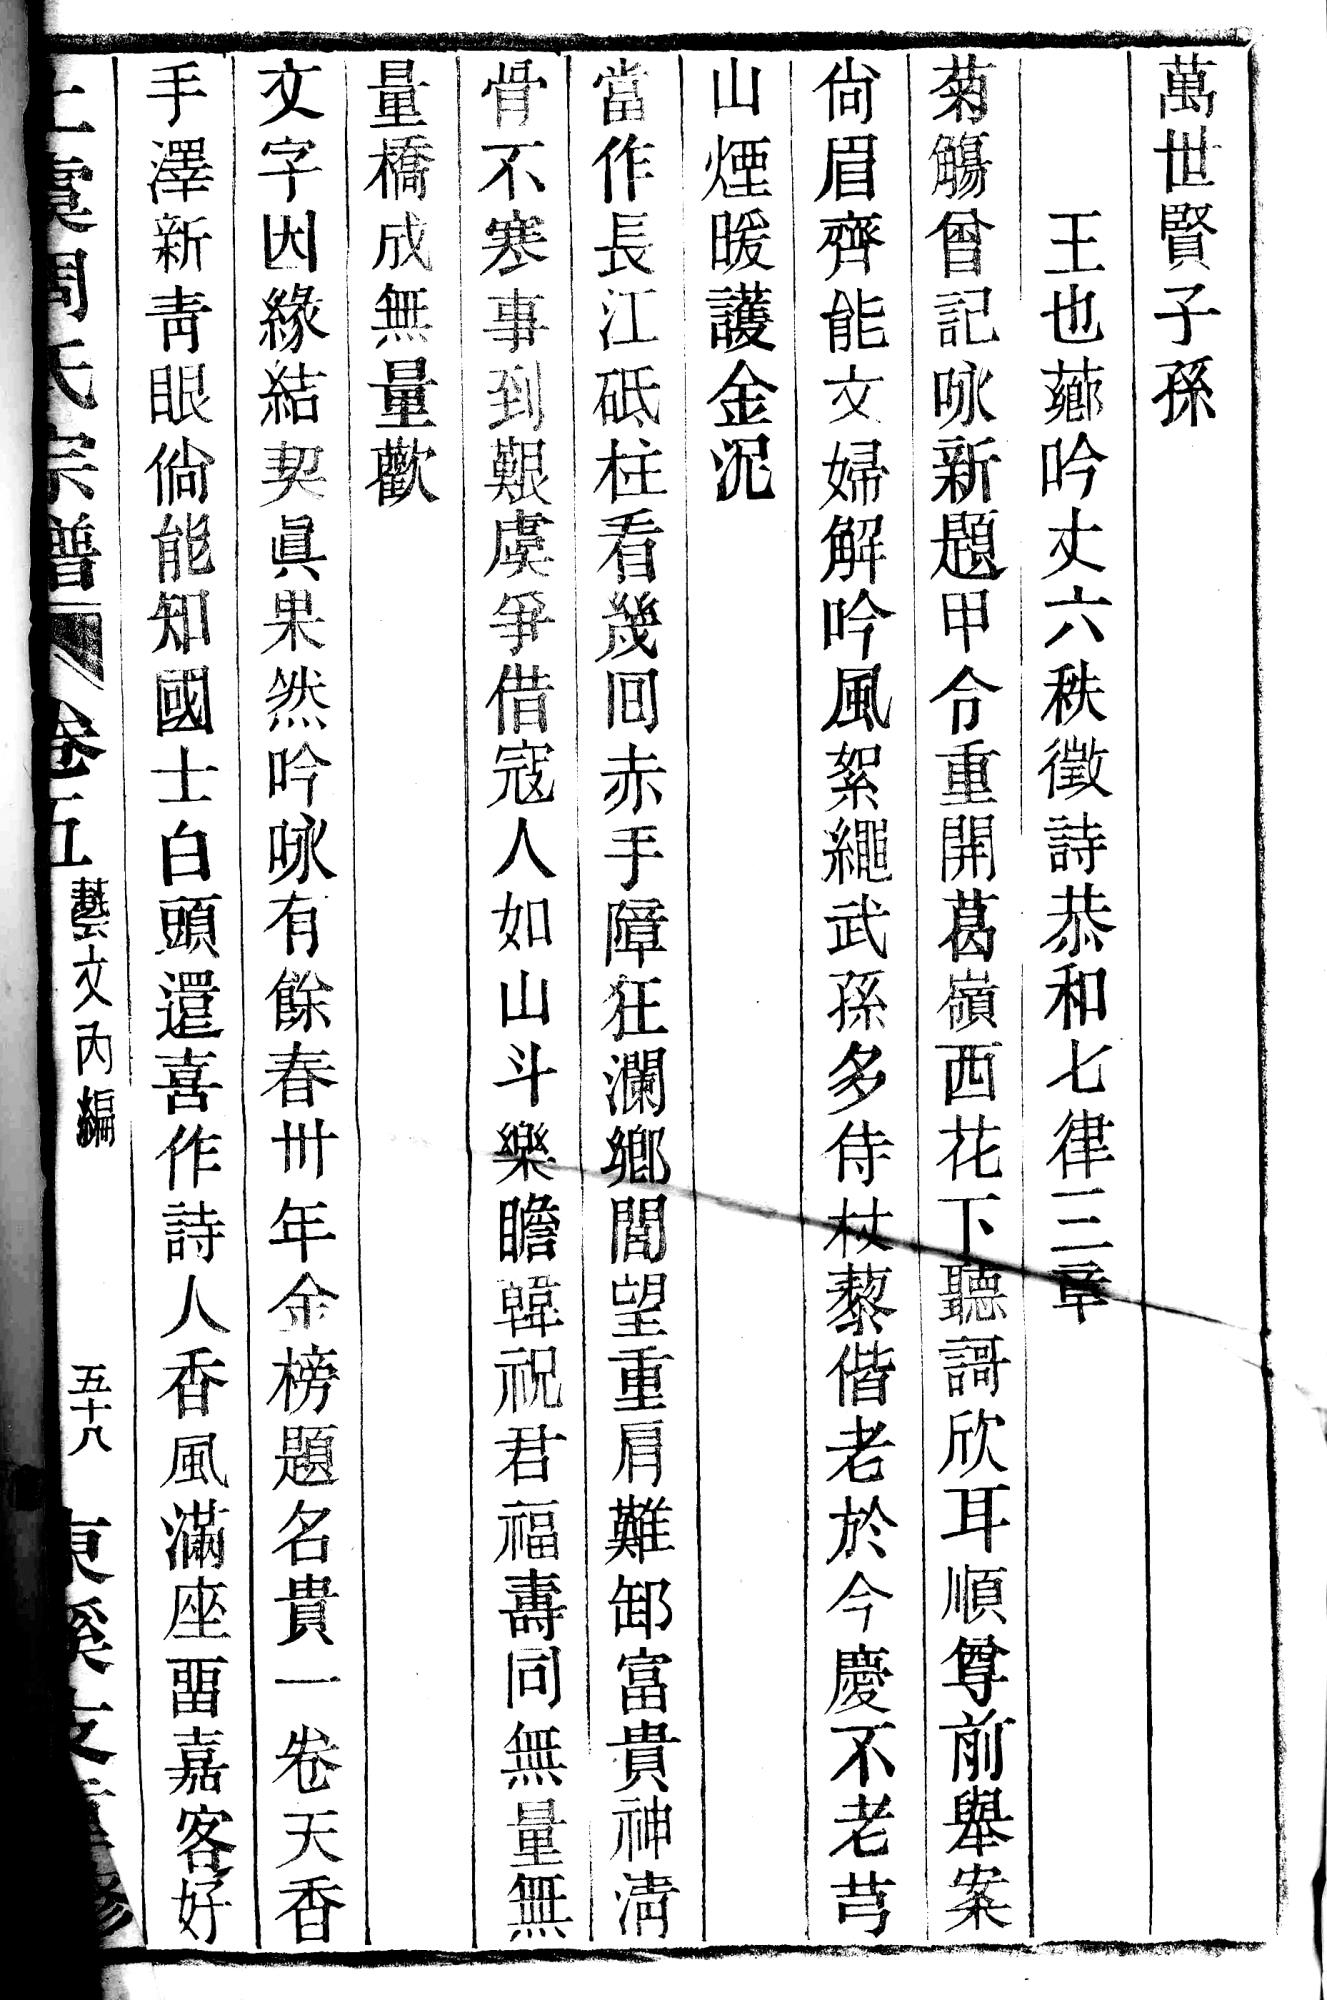 萬世賢子孫
王也薌吟丈六秩徵詩恭和七律三章
菊觴曾記咏新題甲令重開葛嶺西花下聽謌欣耳順尊前舉案
尙眉齊能文婦解吟風絮繩武孫多侍杖藜偕老於今慶不老芎
山煙暖護金泥
當作長江砥柱看幾回赤手障狂瀾鄉閭望重肩難卸富貴神淸
骨不寒事到艱虞爭借寇人如山斗樂瞻韓祝君福壽同無量無
量橋成無量歡
文字因緣結契眞果然吟咏有餘春卅年金榜題名貴一卷天香
手澤新靑眼倘能知國士白頭還喜作詩人香風滿座畱嘉客好
上虞周氏宗譜 卷五 藝文內編 五十八 東溪支重修